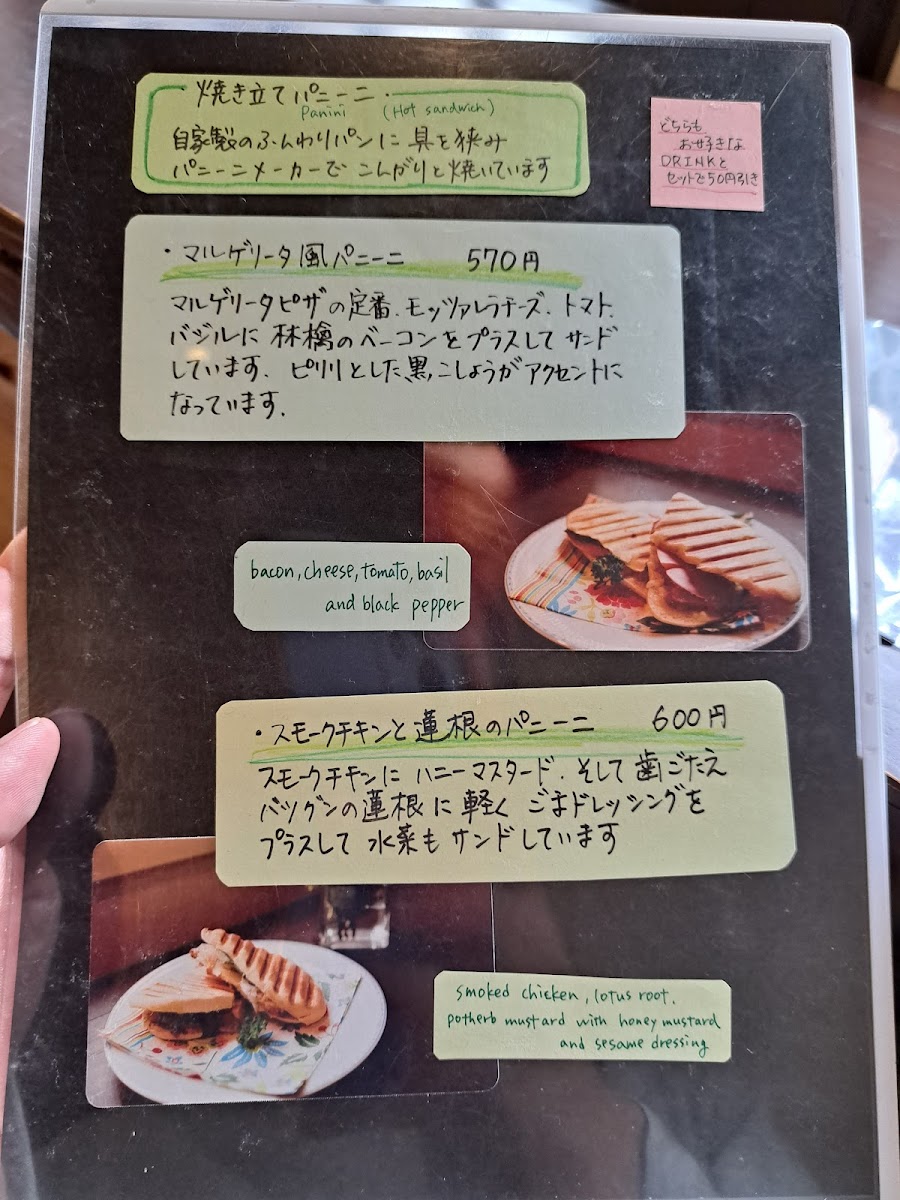 焼き立てパニーニ
Panini (Hot sandwich)
自家製のふんわりパンに 具を挟み
パニーニメーカーで こんがりと焼いています
どちらも
お好きな
DRINKと
セットで50円引き
・マルゲリータ風パニーニ 570円
マルゲリータピザの定番、モッツァレラチーズ、トマト、
バジルに 林檎のベーコンをプラスして サンド
しています。 ピリリとした黒こしょうがアクセントに
なっています。
bacon, cheese, tomato, basil
and black pepper
・スモークチキンと蓮根のパニーニ 600円
スモークチキンに ハニーマスタード、そして歯ごたえ
バツグンの蓮根に軽く ごまドレッシングを
プラスして 水菜も サンドしています
smoked chicken, lotus root,
potherb mustard with honey mustard
and sesame dressing